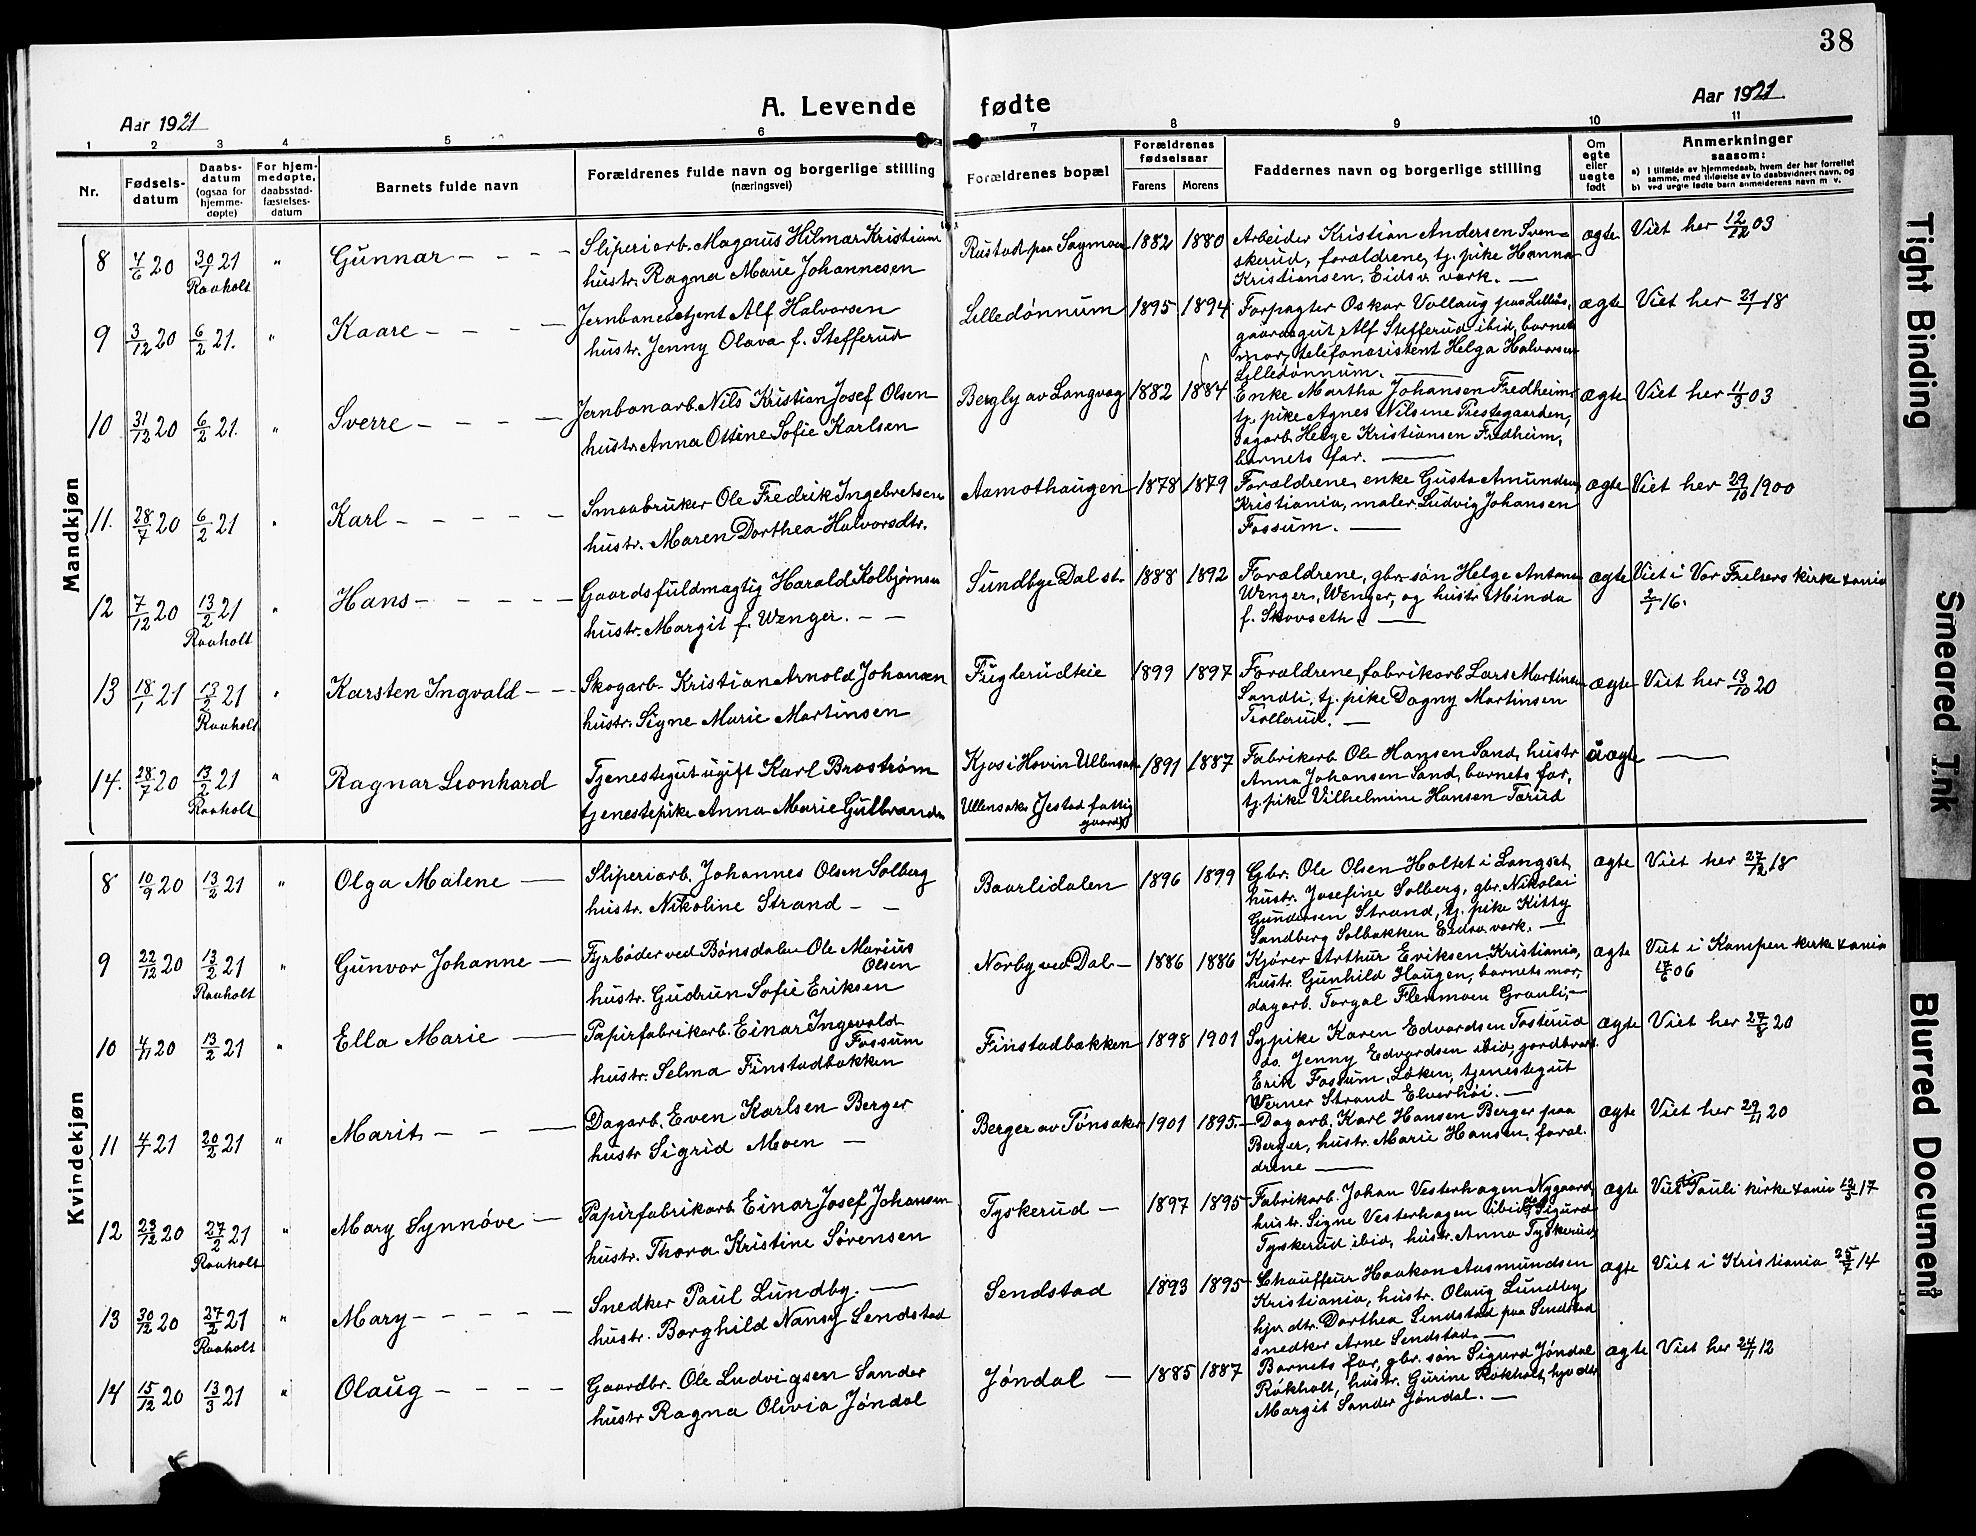 38
Aar 1921
A. Levende fødte
Aar 1921
1 2 3 4 5 6 7 8 9 10 11
Nr.
Fødsels-
datum
Daabs-
datum
(ogsaa for
hjemme-
døpte)
For hjem-
medøpte,
daabsstad-
fæstelses-
datum
Barnets fulde navn
Forældrenes fulde navn og borgerlige stilling
(næringsvei)
Forældrenes bopæl
Forældrenes
fødselsaar
Farens Morens
Faddernes navn og borgerlige stilling
Om
egte
eller
uegte
født
Anmerkninger
saasom:
a) i tilfælde av hjemmedaab, hvem der har forrettet
samme, med tilføielse av to daabsvidners navn, og
b) ved uegte fødte barn anmelderens navn m. v.
Mandkjøn
8 7/6 20 30/1 21 Raaholt " Gunnar
Sliperiarb. Magnus Hilmar Kristians
hustr. Ragna Marie Johannesen
Rustad paa Sagmoen 1882 1880
Arbeider Kristian Andersen Sven-
skerud, forældrene, tj. pike Hanna
Kristiansen, Eidsv. værk.
ægte Viet her 12/12 03
9 3/12 20 6/2 21. " Kaare
Jernbanebetjent Alf Halvorsen
hustr. Jenny Olava f. Stefferud
Lilledønnum 1895 1894
Forpagter Oskar Vollaug paa Lilleds.
gaardsgut Alf Stefferud ibid, barnets
mor, telefonasistent Helga Halvorsen
Lilledønnum.
ægte Viet her 21/1 18
10 31/12 20 6/2 21. " Sverre
Jernbanarb. Nils Kristian Josef Olsen
hustr. Anna Ottine Sofie Karlsen
Bergly av Langvag 1882 1884
Enke Martha Johansen Fredheim,
tj. pike Agnes Nilsine Prestegaarden,
dagarb. Helge Kristiansen Fredheim,
barnets far.
ægte Viet her 11/3 03
11. 28/7 20 6/2 21 " Karl
Smaabruker Ole Fredrik Ingebretsen
hustr. Maren Dorthea Halvorsdtr.
Aamothaugen 1878 1879
Forældrene, enke Gusta Amundsen,
Kristiania, maler Ludvig Johansen
Fossum.
ægte Viet her 29/10 1900
12 7/12 20 13/2 21 Raaholt " Hans
Gaardsfuldmægtig Harald Kolbjørnsen
hustr. Margit f. Wenger.
Sundbye Dal st. 1888 1892
Forældrene, gbr. søn Helge Antons
Wenger, Wenger, og hustr. Minda
f. Skovseth.
ægte Viet i Vor Frelsers kirke Xania
2/1 16.
13 18/1 21 13/2 21 Raaholt " Karsten Ingvald
Skogarb. Kristian Arnold Johansen
hustr. Signe Marie Martinsen
Fuglerudteie 1899 1897
Forældrene, fabrikarb. Lars Martinsen
Sandli, tj. pike Dagny Martinsen
Trollerud.
ægte Viet her 13/10 20
14. 28/7 20 13/2 21 Raaholt " Ragnar Leonhard
Tjenestegut ugift Karl Brostrøm
tjenestepike Anna Marie Gulbrands
Kjos i Hovin Ullensak.
Ullensaker (Jestad fattig
gaard) 1891 1887
Fabrikarb. Ole Hansen Sand, hustr.
Anna Johansen Sand, barnets far,
tj. pike Vilhelmine Hansen Tærud
uægte
Kvindekjøn
8 10/9 20 13/2 21 " Olga Malene
Sliperiarb. Johannes Olsen Solberg
hustr. Nikoline Strand
Baarlidalen 1896 1899
Gbr. Ole Olsen Holtet i Langset,
hustr. Josefine Solberg, gbr. Nikolai
Gundersen Strand, tj. pike Kitty
Sandberg Solbakken Eidsv. værk.
ægte Viet her 27/12 18
9 22/12 20 13/2 21 Raaholt " Gunvor Johanne
Fyrbøder ved Bønsdalen Ole Marius
Olsen
hustr. Gudrun Sofie Eriksen
Norby ved Dal 1886 1886
Kjører Arthur Eriksen Kristiania,
hustr. Gunhild Haugen, barnets mor,
dagarb. Torgal Flenmoen Granli,
ægte Viet i Kampen kirke Xania
17/6 06
10 4/11 20 13/2 21 " Ella Marie
Papirfabrikarb. Einar Ingevald
Fossum
hustr. Selma Finstadbakken
Finstadbakken 1898 1901
Sypike Karen Edvardsen Tosterud
do. Jenny Edvardsen ibid, jordbrar.
Erik Fossum, Løken, tjenestegut
Verner Strand Elverhøi.
ægte Viet her 27/8 20
11 4/1 21 20/2 21 " Marit
Dagarb. Even Karlsen Berger
hustr Sigrid Moen
Berger av Tønsaker 1901 1895
Dagarb. Karl Hansen Berger paa
Berger, hustr. Marie Hansen, foræl.
drene
ægte Viet her 29/11 20
12 23/12 20 27/2 21 Raaholt " Mary Synnøve
Papirfabrikarb Einar Josef Johansen
hustr. Thora Kristine Sørensen
Tyskerud 1897 1895
Fabrikarb. Johan Vesterhagen Nygaard,
hustr. Signe Vesterhagen ibid, Sigurd
Tyskerud ibid, hustr. Anna Tyskerud,
ægte Viet i Pauli kirke Xania 12/5 17
13 30/12 20 27/2 21 Raaholt " Mary
Snedker Paul Lundby.
hustr. Borghild Nansy Sendstad
Sendstad 1893 1895
Chauffeur Haakon Aasmundsen
Kristiania, hustr. Olaug Lundby
hjv. dtr. Dorthea Sendstad paa Sendstad
snedker Arne Sendstad.
ægte Viet i Kristiania 25/7 14
14 15/12 20 13/3 21 " Olaug
Gaardbr. Ole Ludvigsen Sander
hustr Ragna Olivia Jøndal
Jøndal 1885 1887
Barnets far, gbr. søn Sigurd Jøndal
Røkholt, hustr. Gurine Røkholt, hjv. dtr.
Margit Sander Jøndal.
ægte Viet her 24/11 12
Tight Binding
Smeared Ink
Blurred Document